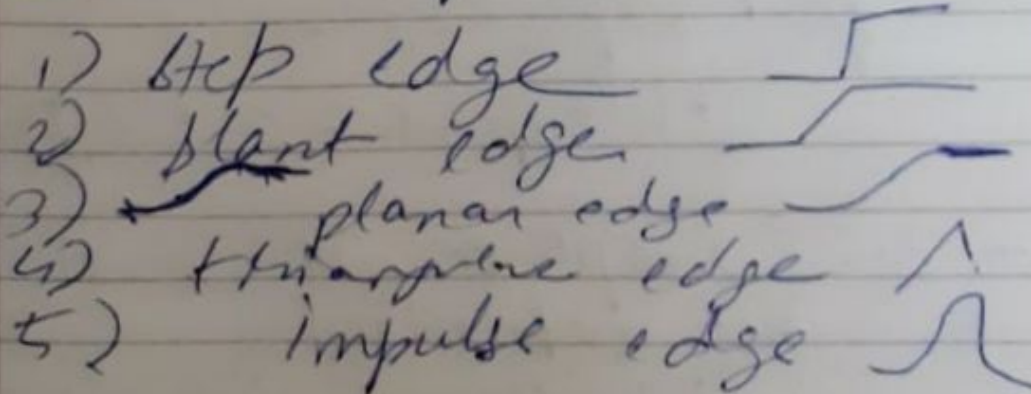 1) Step edge
2) slant edge
3) planar edge
4) triangular edge
5) impulse edge